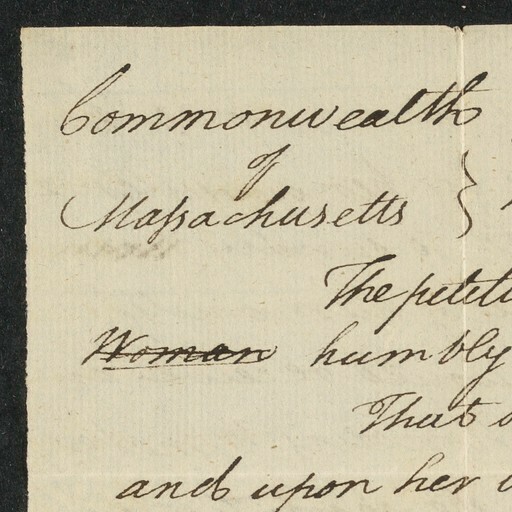 Commonwealth
of
Massachusetts }
The petit
Woman humbly
That
and upon her